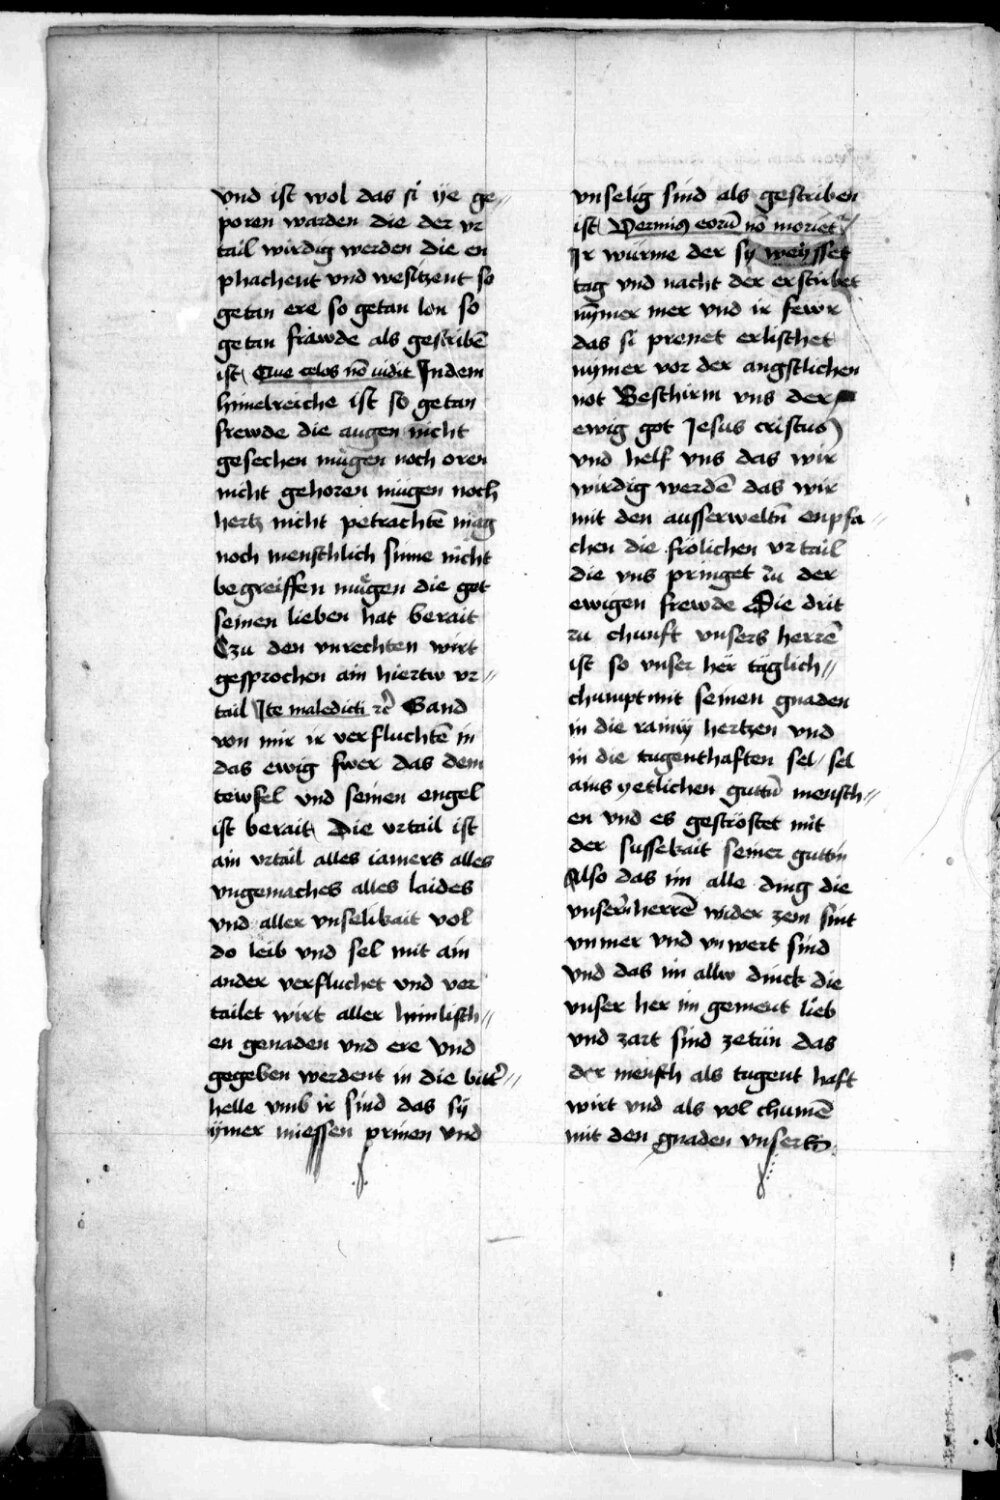 vnd ist wol das si ÿe ge⸗
poren warden die der vr
tail wirdig werden die en
phachent vnd wesitzent so
getan ere so getan lon so
getan fräwde als gescribē
ist Que celos nō vidit Indem
himelreiche ist so getan
frewde die augen nicht
gesechen mügen noch oren
nicht gehoren mügen noch
hertz nicht petrachtē mag
noch menschlich sinne nicht
begreiffen mügen die got
seinen lieben hat berait
Czu den vnrechten wirt
gesprochen ain hiertw vr⸗
tail Ite maledicti rc̃ Gand
von mir ir verfluchtē in
das ewig fwer das dem
tewfel vnd seinen engel
ist berait Die vrtail ist
ain vrtail alles iamers alles
vngemaches alles laides
vnd aller vnselikait vol
do leib vnd sel mit ain
ander verfluchet vnd ver
tailet wirt aller himlisch⸗
en genaden vnd ere vnd
gegeben werdent in die bitt̃⸗
helle vmb ir sind das sÿ
ÿmer miessen prinen vnd
vnselig sind als gescriben
ist Vermis eorū nō moriet̃
Ir würme der sÿ weÿsset
tag vnd nacht der erstirbet
nÿmer mer vnd ir fewr
das si prenet erlischet
nÿmer vor der angstlichen
not Beschirm vns der
ewig got Jesus cristus
vnd helf vns das wir
wirdig werdē das wir
mit den ausserweltn̄ enpfa⸗
chen die frölichen vrtail
die vns pringet zu der
ewigen frewde Die drit
zu chunft vnsers herrē
ist so vnser her täglich⸗
chumpt mit seinen gnaden
in die rainÿ hertzen vnd
in die tugenthaften sel / sel
ains yetlichen guttn̄ mensch⸗
en vnd es geströstet mit
der sussekait seiner guttin
Also das im alle ding die
vnserm̄ herrē wider zem sint
vnmer vnd vnwert sind
vnd das im allw dinck die
vnser her im gement lieb
vnd zart sind zetün das
der mensch als tugent haft
wirt vnd als vol chumē
mit den gnaden vnsers